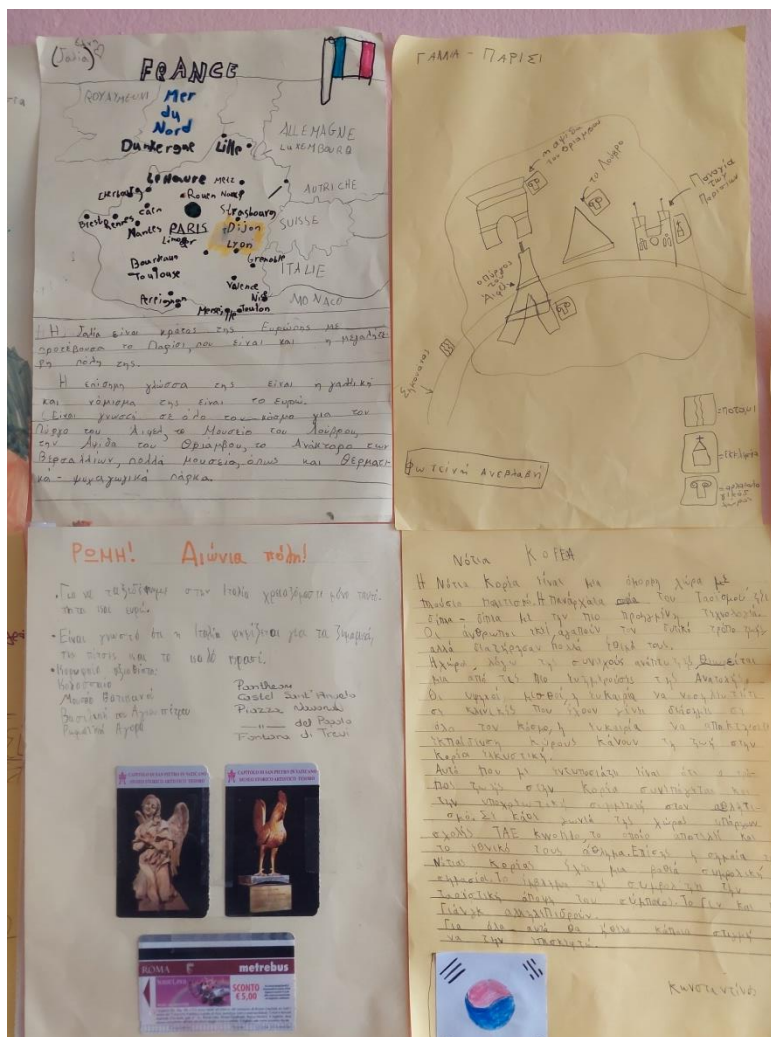 (Ιταλία)
FRANCE
ROYAUME UNI
Mer
du
Nord
Dunkerque
Lille
ALLEMAGNE
LUXEMBOURG
Le Havre
Metz
Cherbourg
Rouen
Nancy
AUTRICHE
Caen
Strasbourg
Brest
Rennes
PARIS
Dijon
SUISSE
Nantes
Limoger
Lyon
Bourdaux
Grenoble
ITALIE
Toulouse
Valence
Nic
MONACO
Perpignan
Marseille
Toulon
Η Γαλία είναι κράτος της Ευρώπης με
προτέβουσα το Παρίσι, που είναι και η μεγαλύτε-
ρη πόλη της.
Η επίσημη γλώσσα της είναι η γαλλική
και νόμισμα της είναι το Ευρώ.
Είναι γνωστή σε όλο τον κόσμο για τον
Πύργο του Άιφελ, το Μουσείο του Λούβρου,
την Αψίδα του Θριάμβου, το Ανάκτορο των
Βερσαλλιών, πολλά μουσεία, όπως και θερματι-
κά - ψυχαγωγικά πάρκα.
ΓΑΛΛΙΑ - ΠΑΡΙΣΙ
η αψίδα
του θριάμβου
το Λούβρο
Παναγία
των
Παρισίων
ο πύργος
του
Άιφελ
Σηκουάνας
=ποτάμι
=εκκλησία
Φωτεινή
ΡΩΜΗ! Αιώνια πόλη!
• Για να ταξιδέψουμε στην Ιταλία χρειαζόμαστε μόνο ταυτό-
τητα και ευρώ.
• Είναι γνωστό ότι η Ιταλία φημίζεται για τα ζυμαρικά,
τις πίτσες και το καλό κρασί.
• Κορυφαία αξιοθέατα:
Κολοσσαίο
Μουσεία Βατικανού
Βασιλική του Αγίου Πέτρου
Ρωμαϊκή Αγορά
Pantheon
Castel Sant' Angelo
Piazza Navona
—〃— del Popolo
Fontana di Trevi
CAPITOLO DI SAN PIETRO IN VATICANO
MUSEO STORICO ARTISTICO - TESORO
CAPITOLO DI SAN PIETRO IN VATICANO
MUSEO STORICO ARTISTICO - TESORO
ROMA
metrebus
SCONTO
€ 5,00
Νότια ΚΟΡΕΑ
Η Νότια Κορέα είναι μια όμορφη χώρα με
πλούσιο πολιτισμό. Η πανάρχαια του Ταοϊσμού ζει
δίπλα - δίπλα με την πιο προηγμένη τεχνολογία.
Οι άνθρωποι εκεί αγαπούν τον δυτικό τρόπο ζωής
αλλά διατήρησαν πολλά έθιμά τους.
Η χώρα, λόγω της συνεχούς ανάπτυξης θεωρείται
μια από τις πιο της Ανατολής.
Οι υψηλοί μισθοί, η ευκαιρία να νοσηλευτείς
σε κλινικές που έχουν γίνει διάσημες σε
όλο τον κόσμο, η ευκαιρία να αποκτήσεις
εκπαίδευση κύρους κάνουν τη ζωή στην
Κορέα ελκυστική.
Αυτό που με εντυπωσιάζει είναι ότι ο τρό-
πος ζωής στην Κορέα συνεπάγεται και
την υποχρεωτική στον αθλητι-
σμό. Σε κάθε γωνιά της χώρας υπάρχουν
σχολές ΤΑΕ Κwοndo, το οποίο αποτελεί και
το εθνικό τους άθλημα. Επίσης η σημαία της
Νότιας Κορέας έχει μια βαθιά συμβολική
σημασία. Το έμβλημα της συμβολίζει την
ταοϊστική άποψη του σύμπαντος. Το Γιν και
Γιάνγκ αλληλεπιδρούν.
Για όλα αυτά θα ήθελα κάποια στιγμή
να την επισκεφτώ.
Κωνσταντίνος